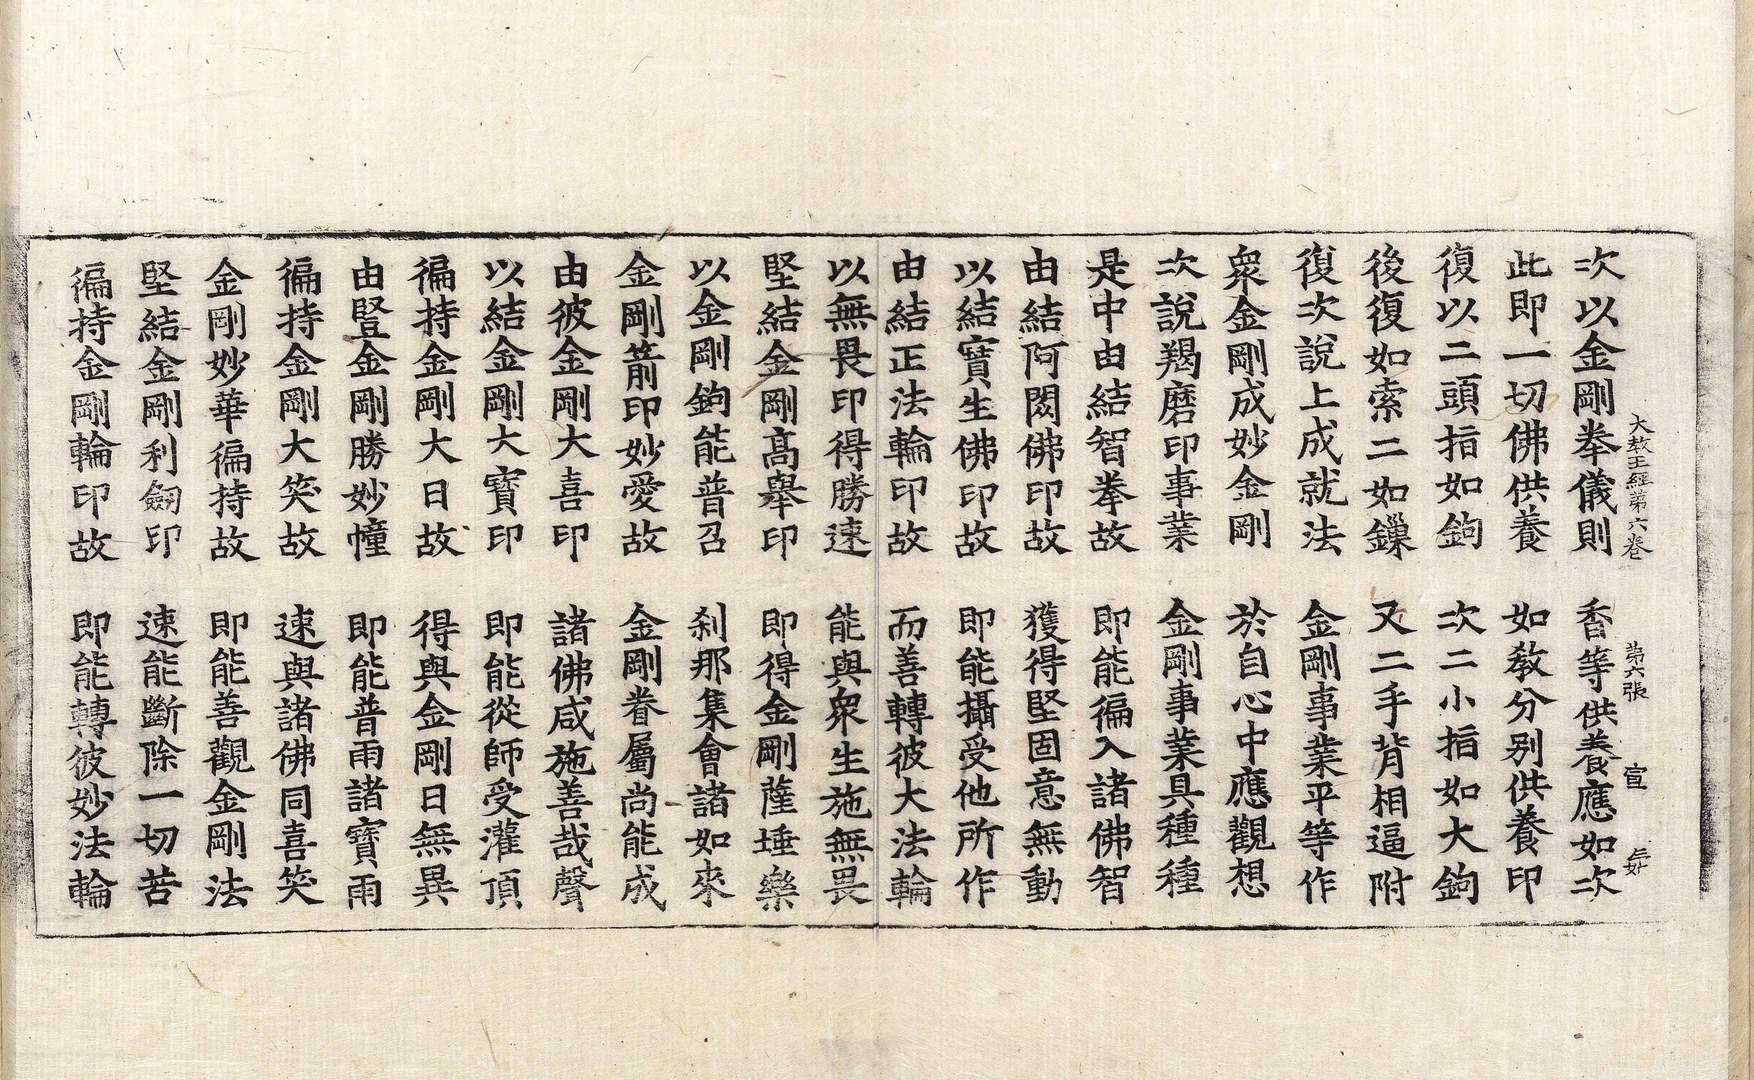 大教王經第六卷　第六張　宣
次以金剛拳儀則　香等供養應如次
此即一切佛供養　如教分別供養印
復以二頭指如鉤　次二小指如大鉤
後復如索二如鏁　又二手背相逼附
復次說上成就法　金剛事業平等作
衆金剛成妙金剛　於自心中應觀想
次說羯磨印事業　金剛事業具種種
是中由結智拳故　即能徧入諸佛智
由結阿閦佛印故　獲得堅固意無動
以結寶生佛印故　即能攝受他所作
由結正法輪印故　而善轉彼大法輪
以無畏印得勝速　能與衆生施無畏
堅結金剛高舉印　即得金剛薩埵樂
以金剛鉤能普召　刹那集會諸如來
金剛箭印妙愛故　金剛眷屬尚能成
由彼金剛大喜印　諸佛咸施善哉聲
以結金剛大寶印　即能從師受灌頂
徧持金剛大日故　得與金剛日無異
由豎金剛勝妙幢　即能普雨諸寶雨
徧持金剛大笑故　速與諸佛同喜笑
金剛妙華徧持故　即能善觀金剛法
堅結金剛利劒印　速能斷除一切苦
徧持金剛輪印故　即能轉彼妙法輪